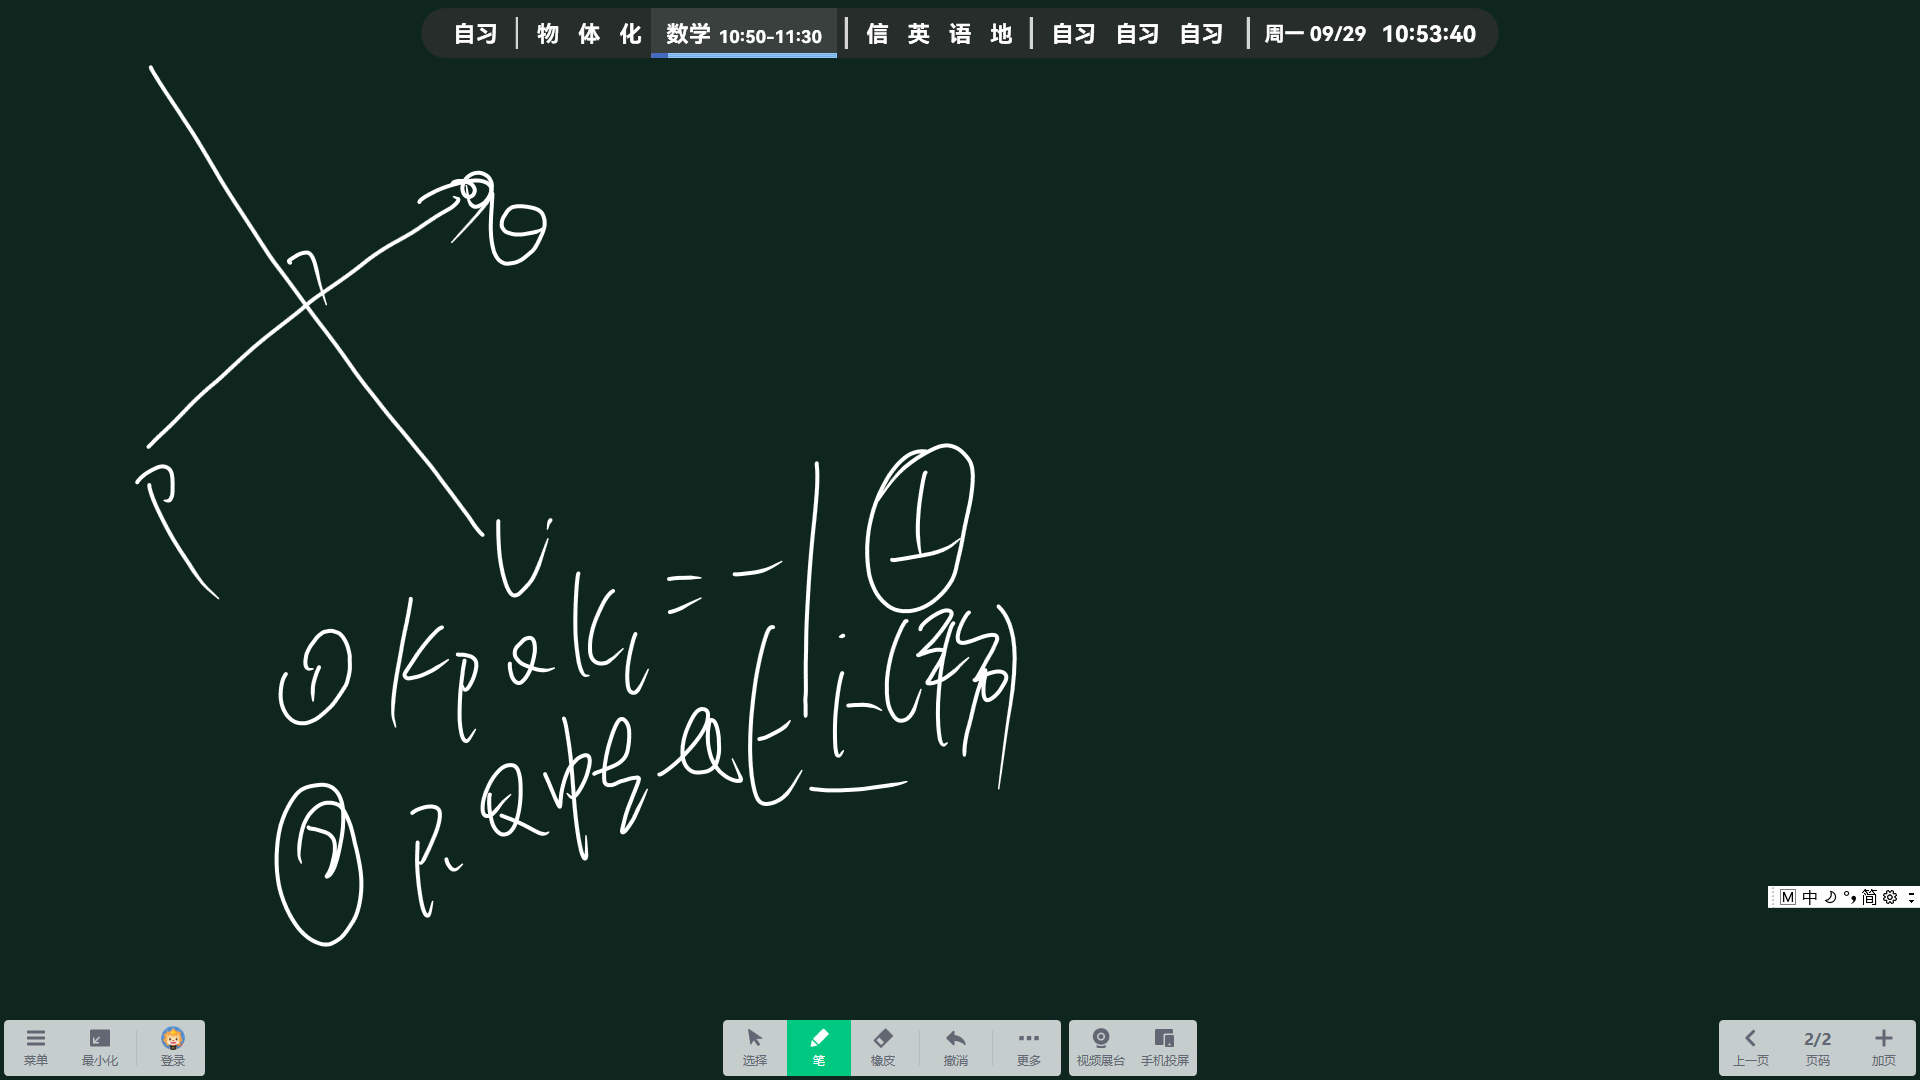 自习 | 物 体 化 数学 10:50-11:30 | 信 英 语 地 | 自习 自习 自习 | 周一 09/29 10:53:40
Q
P
l
① K_PQ K_l = -1 ⊥
② P、Q中点在l上(平分)
M 中 简
菜单 最小化 登录 选择 笔 橡皮 撤消 更多 视频展台 手机投屏 上一页 2/2 页码 加页